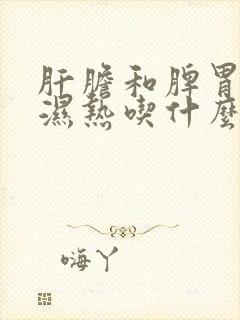 肝膽和脾胃
濕熱喫什麼
嗨丫